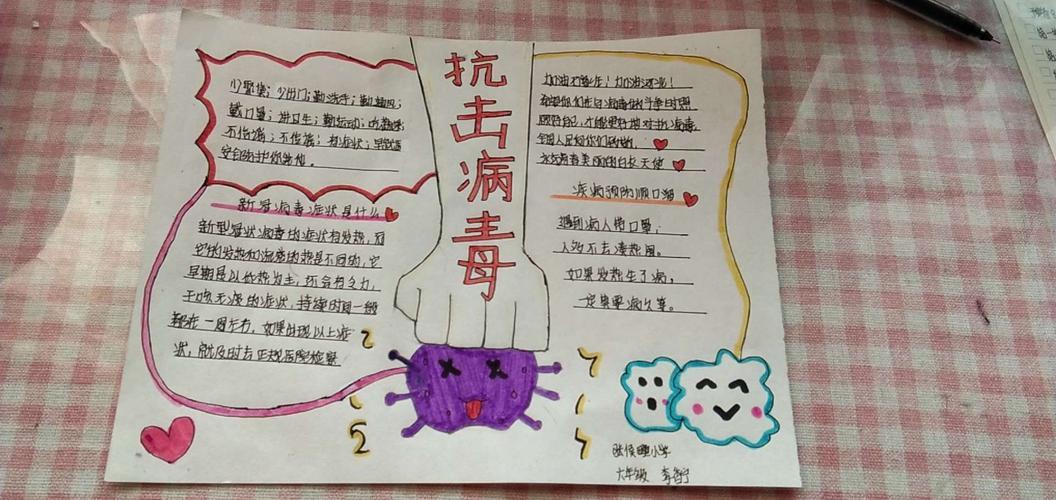 抗击病毒
少聚集；少出门；勤洗手；勤通风；
戴口罩；讲卫生；勤运动；吃熟食；
不信谣；不传谣；有症状；早就医
安全防护你我他。
新冠病毒症状是什么
新型冠状病毒的症状有发热，冠
它的发热和流感的热是不同的，它
早期是以低热为主，还会有乏力，
干咳无痰的症状，持续时间一般
都在一周左右，如果出现以上症
状，就及时去正规医院检察
加油！加油！
顾好自己，才能更好地对抗病毒，
全国人民
天使
疾病预防顺口溜
遇到病人带口罩，
人多不去凑热闹。
如果发热生了病，
一定
小学
六年级 李